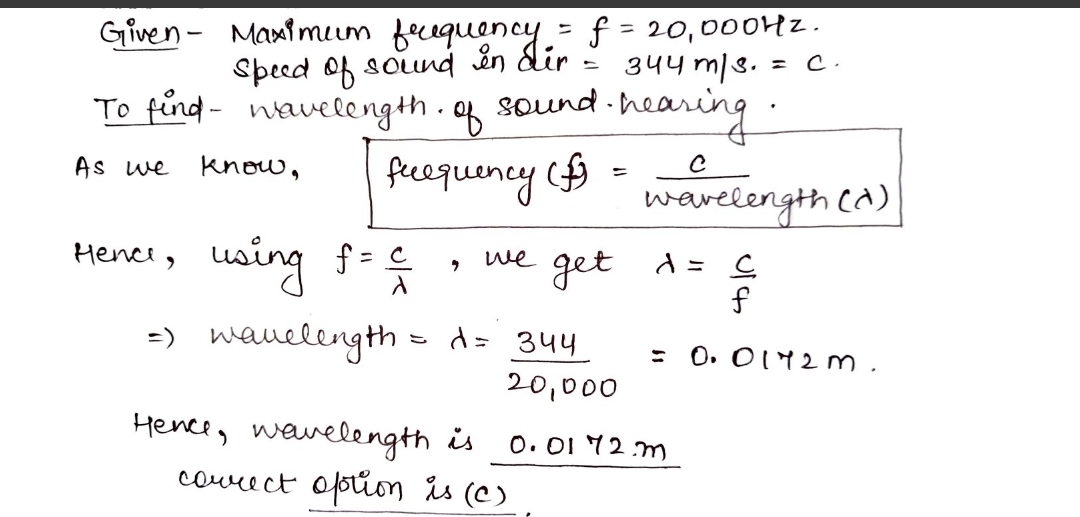 Given - Maximum frequency = f = 20,000Hz.
Speed of sound in air = 344 m/s. = c.
To find - wavelength. of sound. hearing.
As we know, frequency (f) = c / wavelength (λ)
Hence, using f = c/λ , we get λ = c/f
=) wavelength = λ = 344/20,000 = 0.0172 m.
Hence, wavelength is 0.0172.m
correct option is (c).